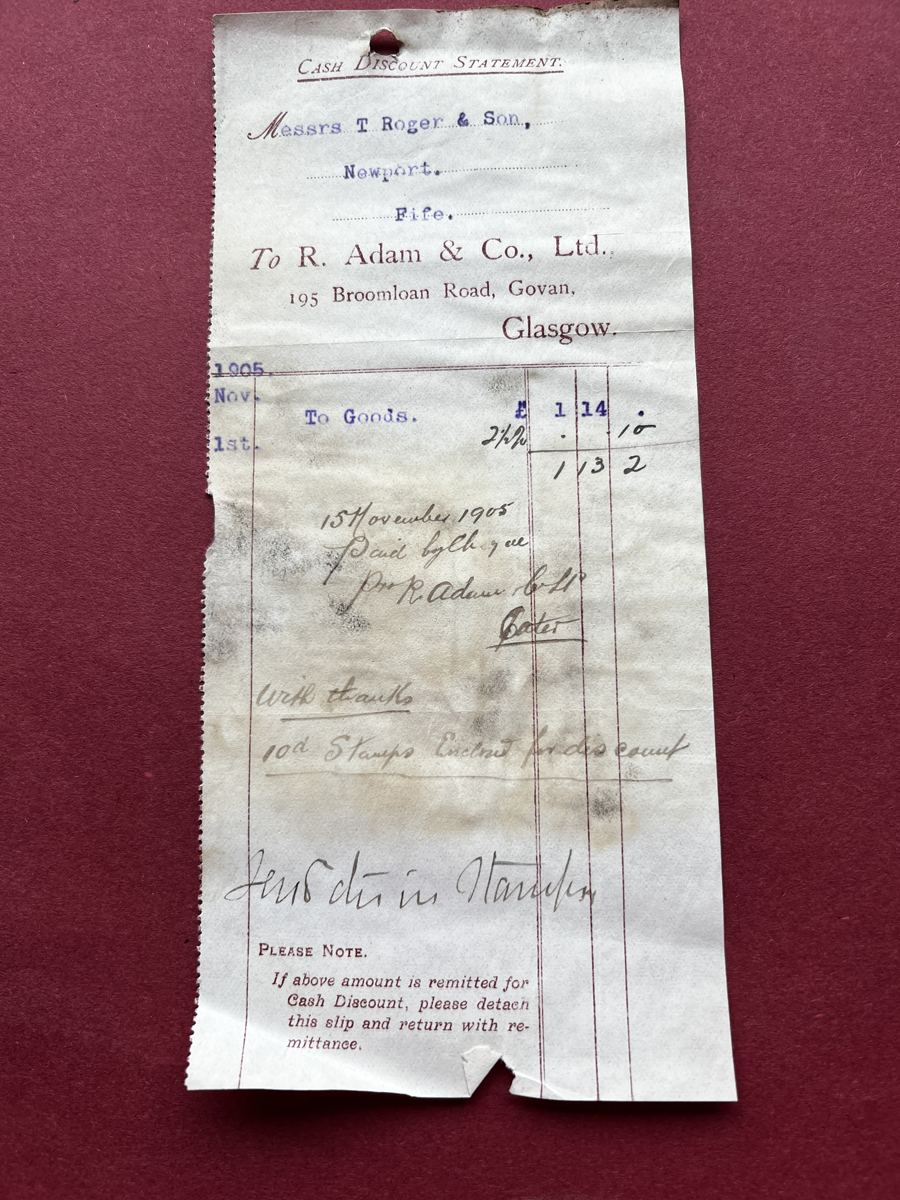 CASH DISCOUNT STATEMENT.
Messrs T Roger & Son,
Newport.
Fife.
To R. Adam & Co., Ltd.
195 Broomloan Road, Govan,
Glasgow.
1905.
Nov.
To Goods. £ 1 14 .
1st. 2½% . . 10
1 13 2
15 November 1905
Paid by Cheque
Pro R Adam & Co Ld
With thanks
10d Stamps Enclosed for discount
in Stamps
PLEASE NOTE.
If above amount is remitted for
Cash Discount, please detach
this slip and return with re-
mittance.